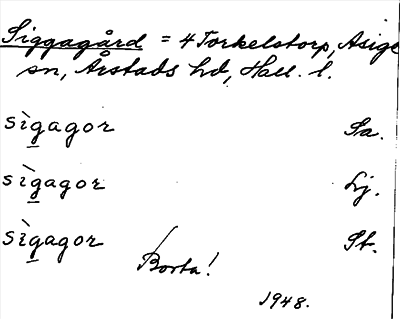 Siggagård = 4 Torkelstorp, Asige
sn, Årstads hd, Hall. l.
sìgagor Sa.
sìgagor Lj.
sìgagor St.
Borta!
1948.